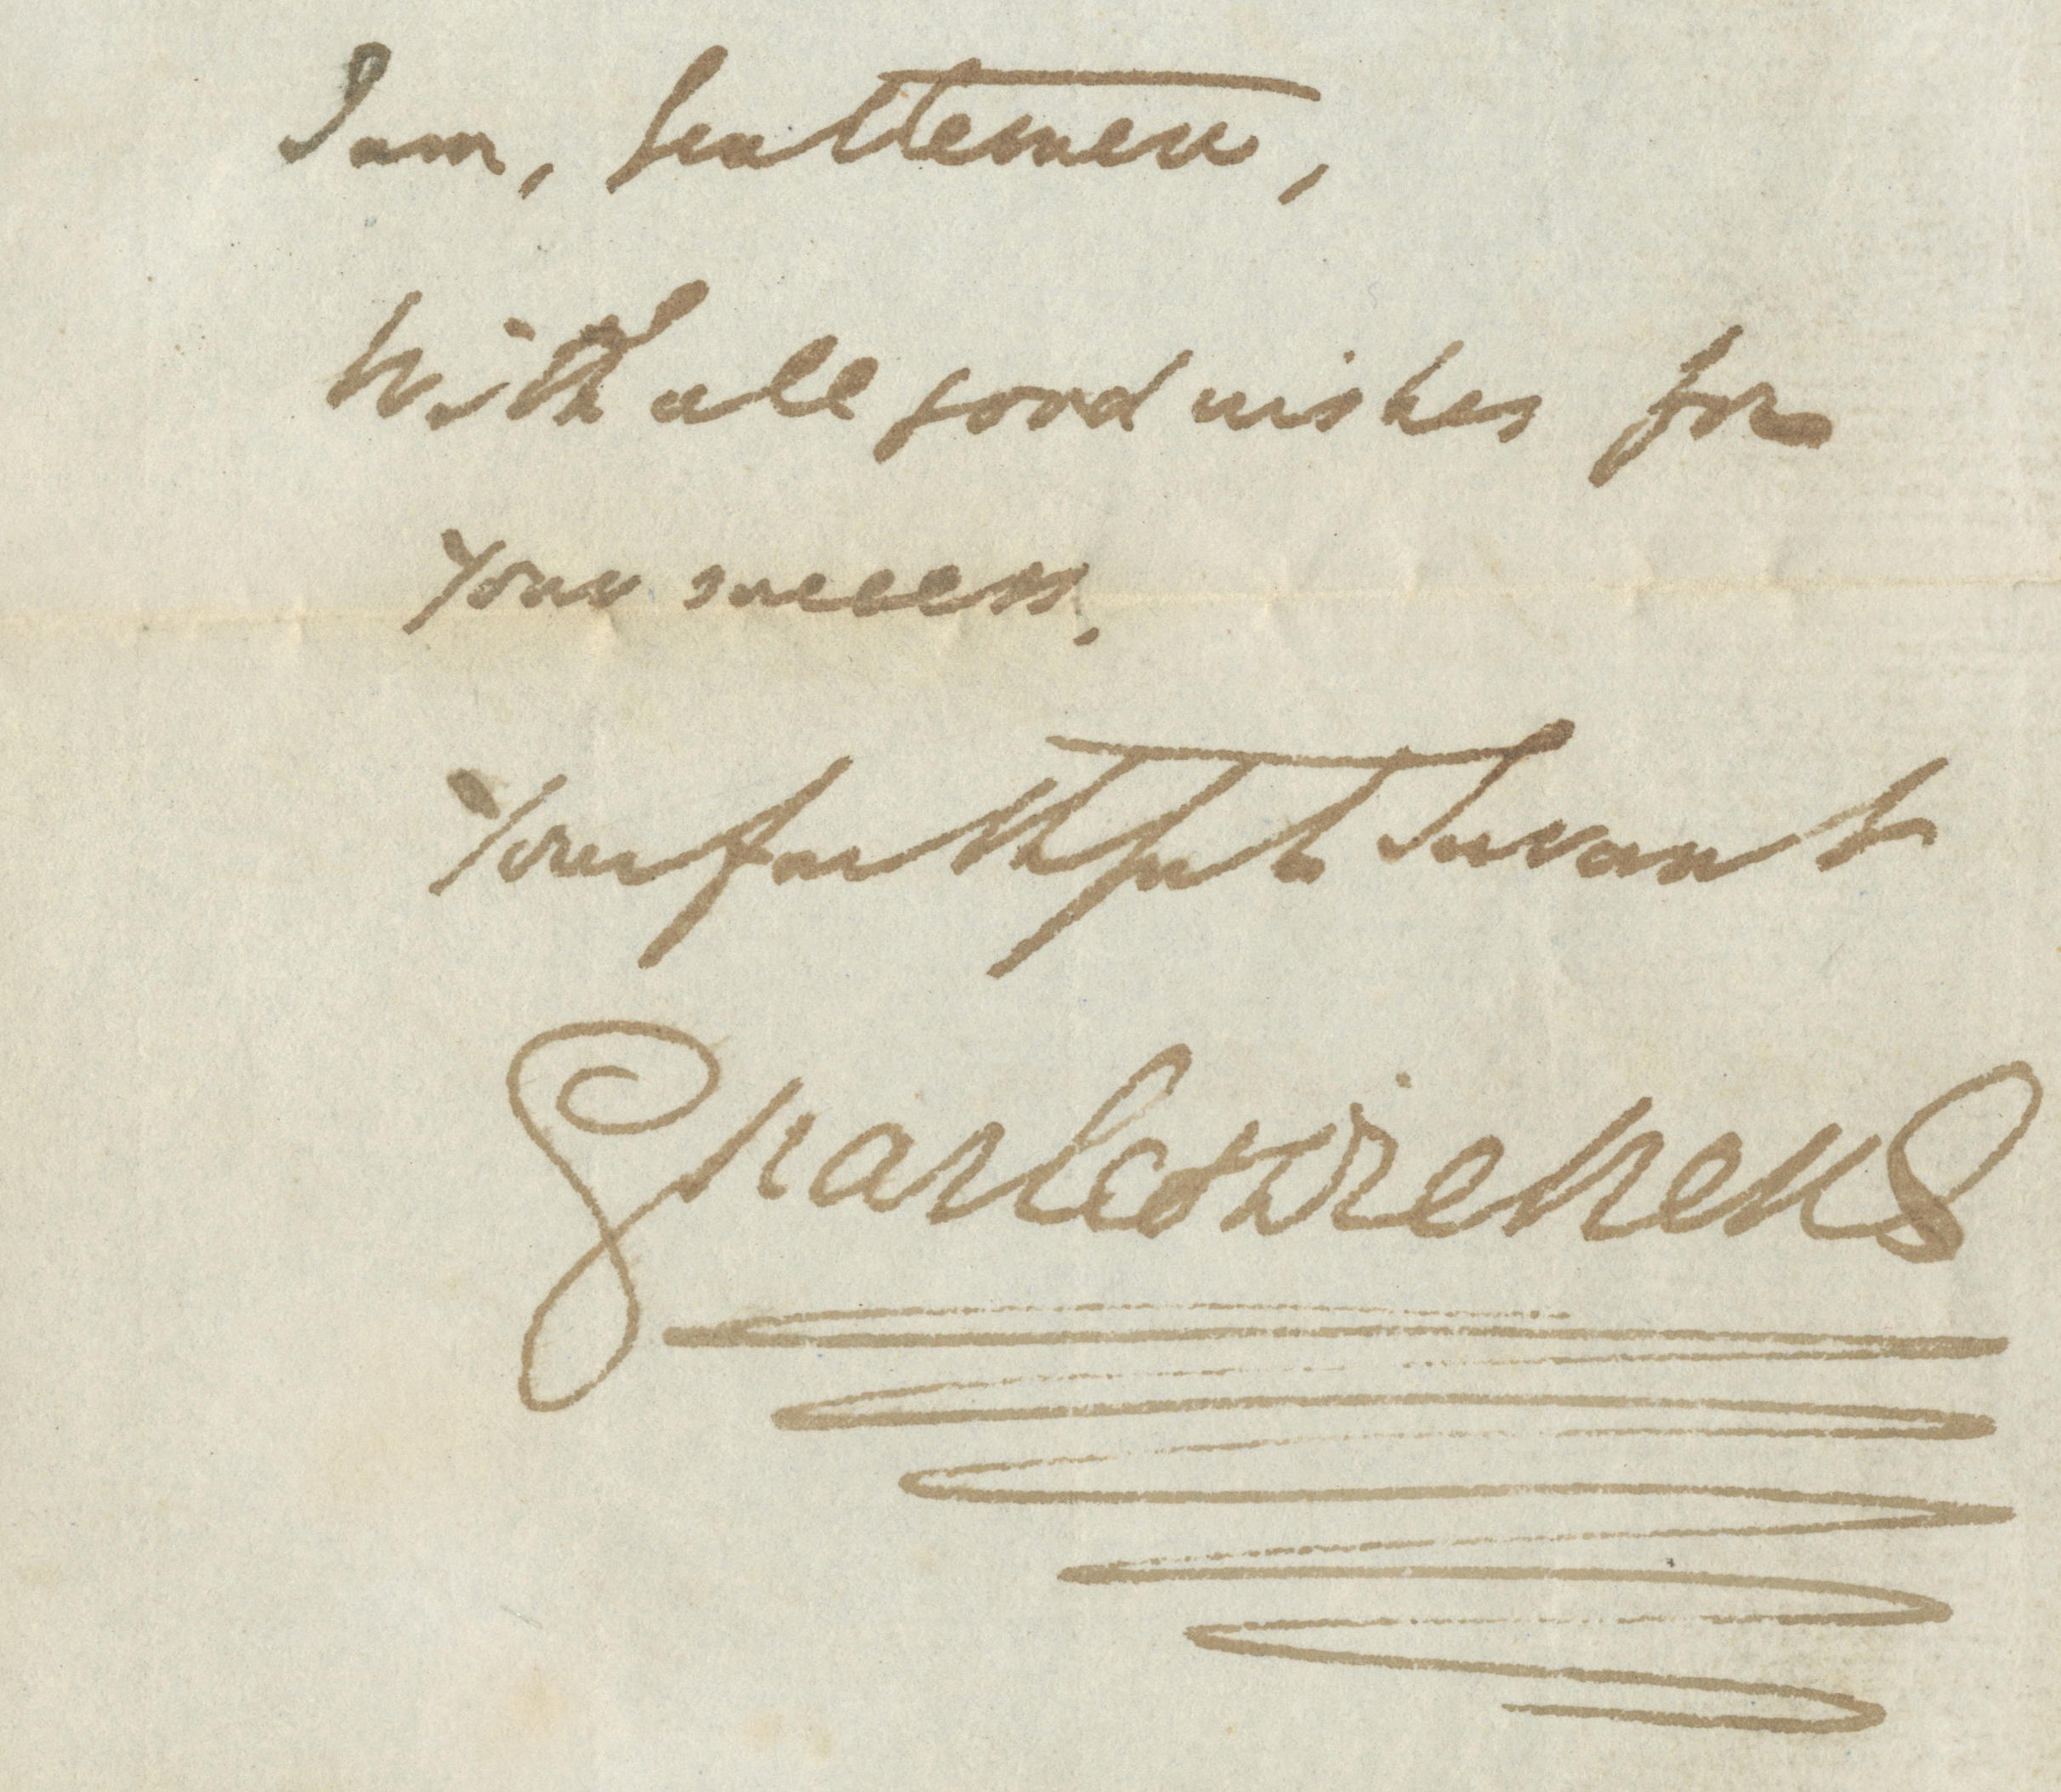 I am, Gentlemen,
With all good wishes for
Your success,
Your faithful Servant
Charles Dickens